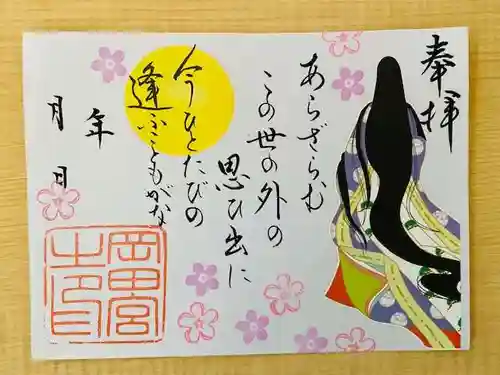 奉拝
あらざらむ
この世の外の
思ひ出に
今ひとたびの
逢ふこともがな
年
月
日
岡田宮
之印